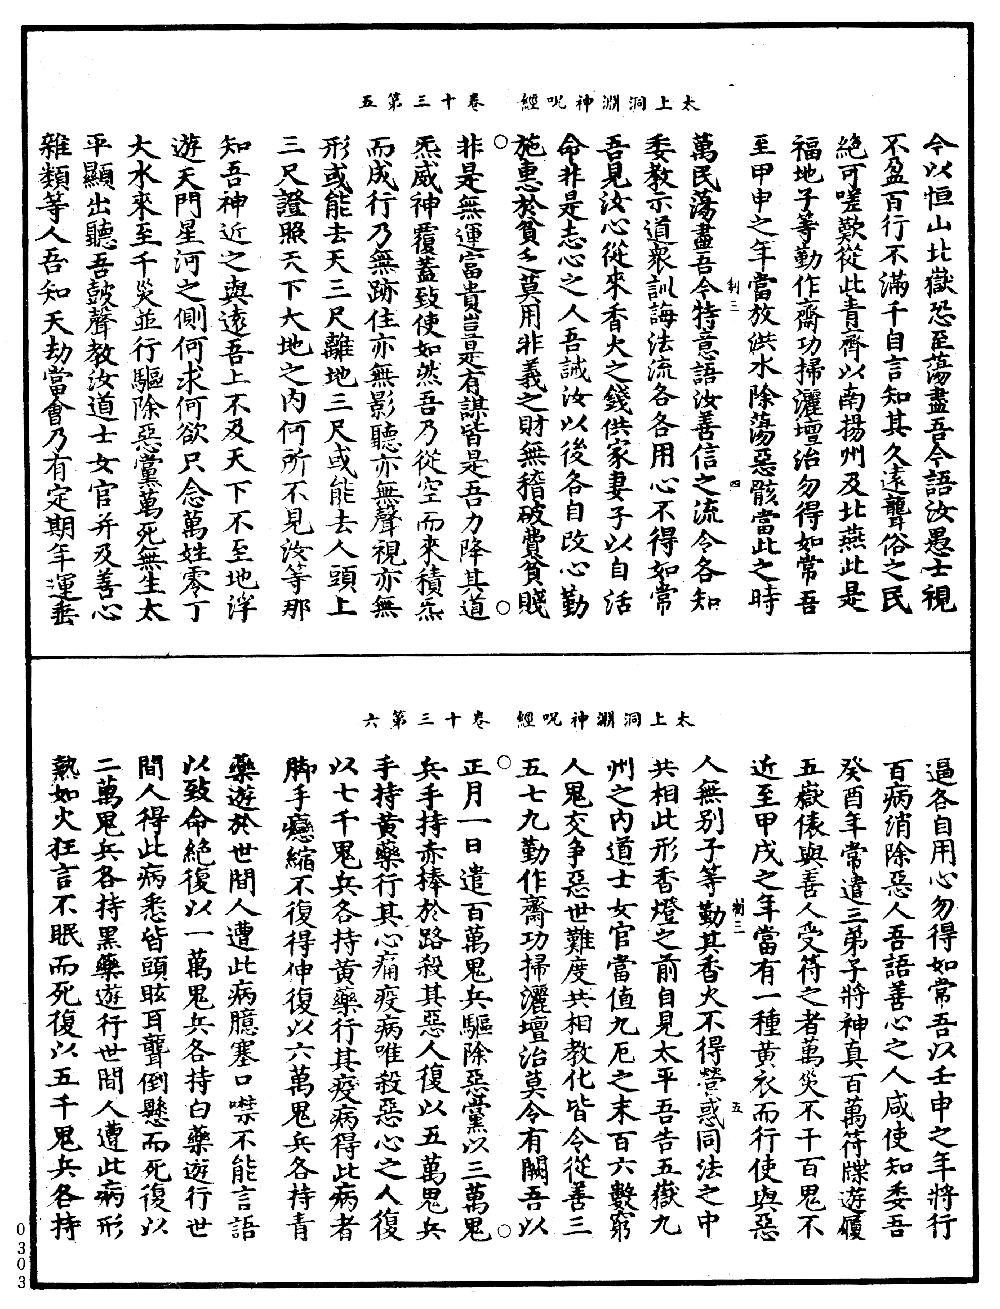 太上洞淵神呪經　卷十三第五
令以恒山北嶽恐至蕩盡吾今語汝愚士視
不盈百行不滿千自言知其久遠聾俗之民
絶可嗟歎從此青齊以南揚州及北燕此是
福地子等勤作齋功掃灑壇治勿得如常吾
至甲申之年當放洪水除蕩惡骸當此之時
制三　四
萬民蕩盡吾今特意語汝善信之流令各知
委教示道衆訓誨法流各各用心不得如常
吾見汝心從來香火之錢供家妻子以自活
命非是志心之人吾誡汝以後各自改心勤
施惠於貧乏莫用非義之財無稽破費貧賤
非是無運富貴豈是有謀皆是吾力降其道
炁威神覆蓋致使如然吾乃從空而來積炁
而成行乃無跡住亦無影聽亦無聲視亦無
形或能去天三尺離地三尺或能去人頭上
三尺證照天下大地之內何所不見汝等那
知吾神近之與遠吾上不及天下不至地浮
遊天門星河之側何求何欲只念萬姓零丁
大水來至千災並行驅除惡黨萬死無生太
平顯出聽吾鼓聲教汝道士女官并及善心
雜類等人吾知天劫當會乃有定期年運垂
太上洞淵神呪經　卷十三第六
逼各自用心勿得如常吾以壬申之年將行
百病消除惡人吾語善心之人咸使知委吾
癸酉年常遣三弟子將神真百萬符牒遊履
五嶽俵與善人受符之者萬災不干百鬼不
近至甲戌之年當有一種黃衣而行使與惡
制三　五
人無別子等勤其香火不得營惑同法之中
共相此形香燈之前自見太平吾告五嶽九
州之內道士女官當值九厄之末百六數窮
人鬼交爭惡世難度共相教化皆令從善三
五七九勤作齋功掃灑壇治莫令有闕吾以
正月一日遣百萬鬼兵驅除惡黨以三萬鬼
兵手持赤棒於路殺其惡人復以五萬鬼兵
手持黃藥行其心痛疫病唯殺惡心之人復
以七千鬼兵各持黃藥行其疫病得此病者
脚手攣縮不復得伸復以六萬鬼兵各持青
藥遊於世間人遭此病臆塞口噤不能言語
以致命絕復以一萬鬼兵各持白藥遊行世
間人得此病悉皆頭眩耳聾倒懸而死復以
二萬鬼兵各持黑藥遊行世間人遭此病形
熱如火狂言不眠而死復以五千鬼兵各持
0303